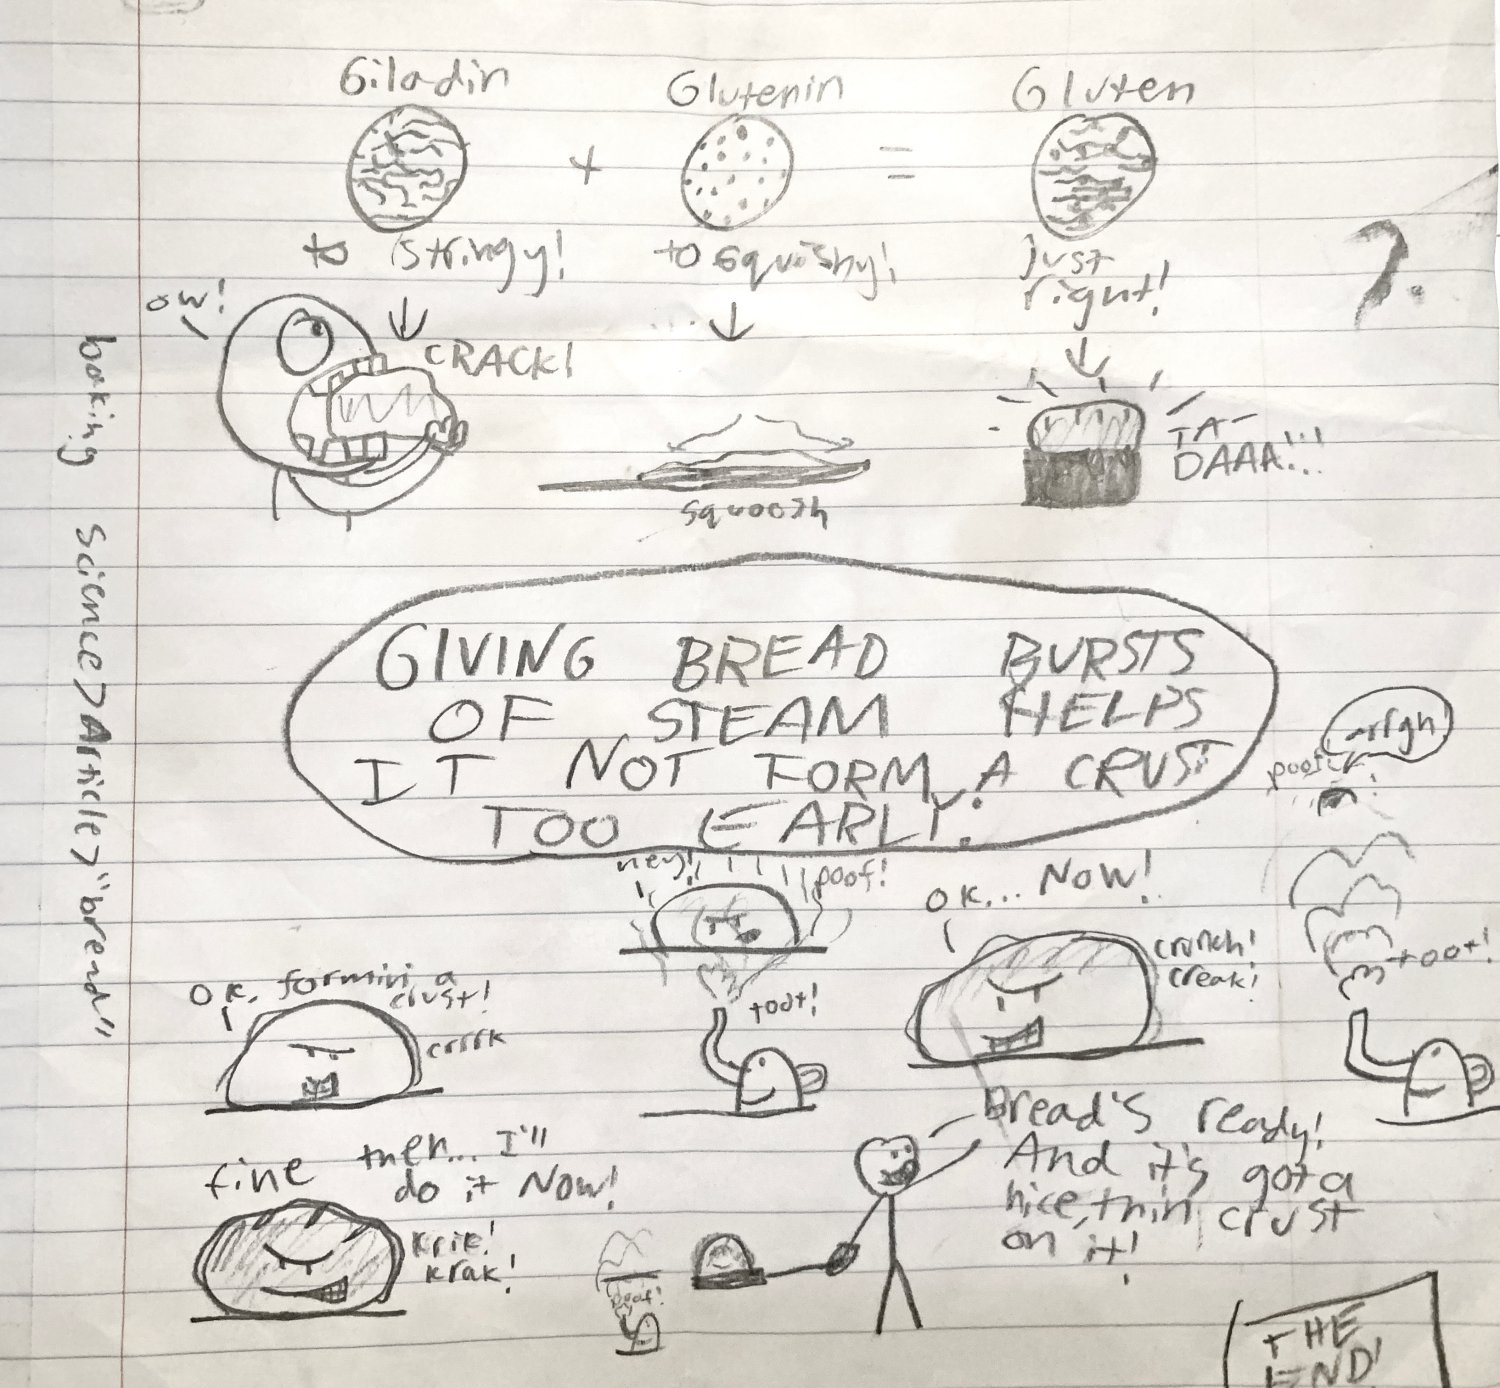 Giladin
+
Glutenin
=
Gluten
to stringy!
to squishy!
just
right!
?.
ow!
CRACK!
squoosh
TA-
DAAA!!!
baking science > Article > "bread"
GIVING BREAD BURSTS
OF STEAM HELPS
IT NOT FORM A CRUST
TOO EARLY!
arrgh!
hey!
poof!
OK... NOW!
crunch!
creak!
toot!
OK, formin a
crust!
crrrk
toot!
fine then... I'll
do it NOW!
krik!
krak!
Bread's ready!
And it's got a
nice, thin crust
on it!
THE
END!